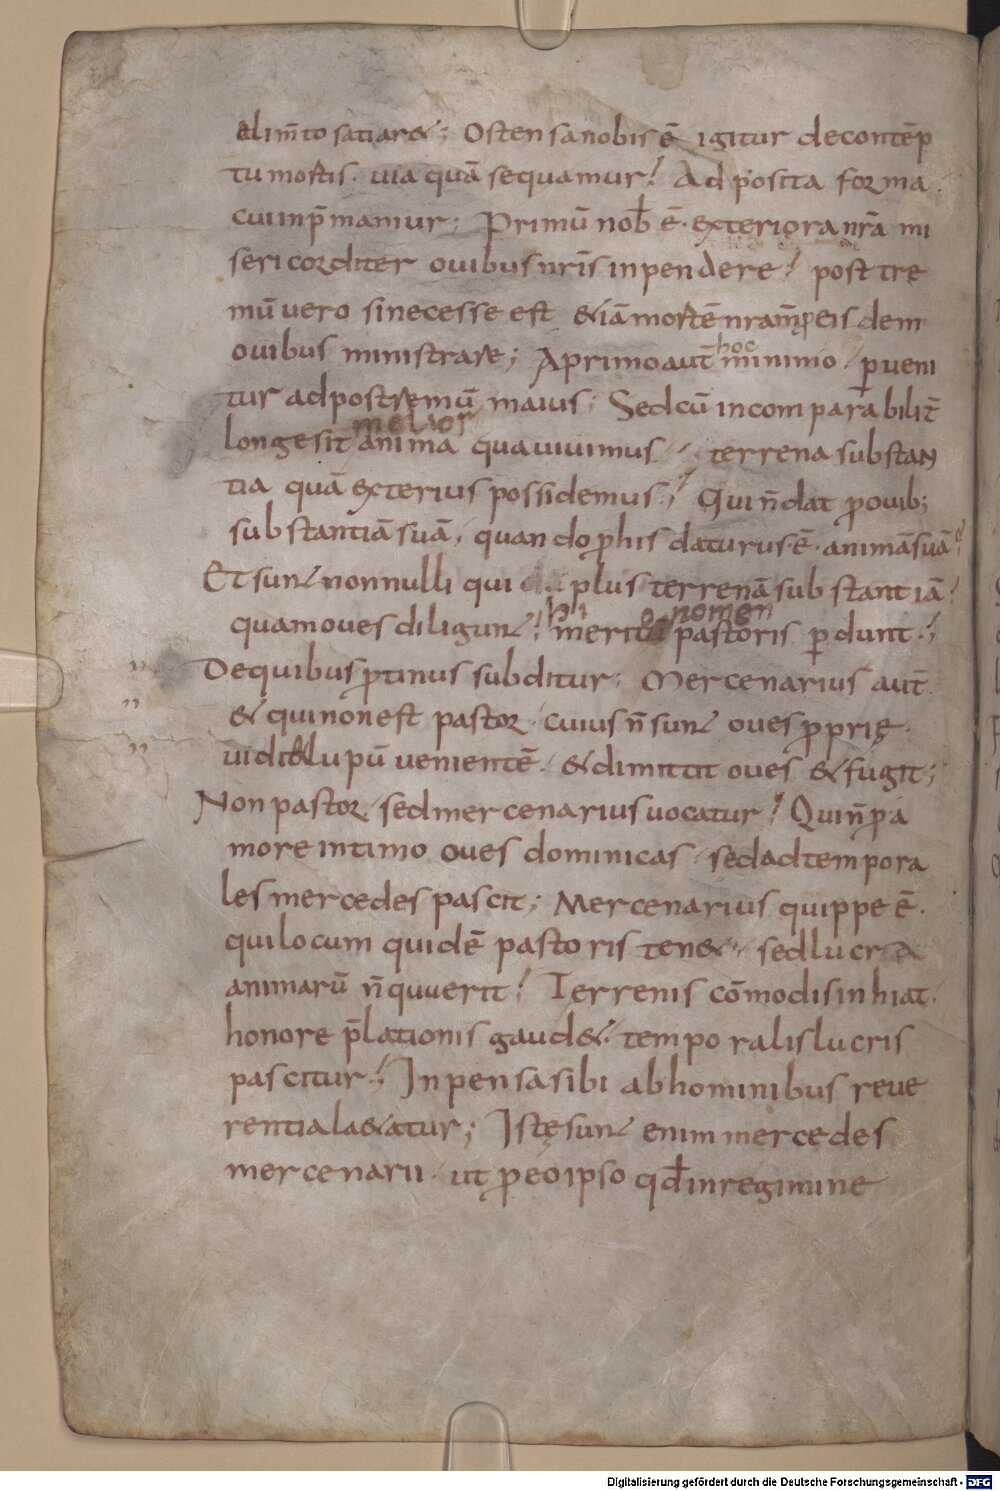 alim̄to satiar&; Ostensa nobis ē igitur decontēp
tu mortis. uia quā sequamur! Ad posita forma
cui inp̄mamur; Primū nob̄ ē. exteriora nr̄a mi
sericorditer ouibus nr̄is inpendere! postre
mū uero si necesse est &iā mortē nram̄ p eis dem
hoc
ouibus ministrare; A primo aut̄ minimo. pueni
tur ad postremū maius; Sed cū incomparabilit̄
melior
longe sit anima qua uiuimus. terrena substan
tia quā exterius possidemus.! Qui n̄ dat p ouib;
substantiā suā, quando p his daturus ē. animā suā?
Et sunt nonnulli qui plus terrenā substantiā!
hii o nomen
quam oues diligunt! merito pastoris pdunt.!
De quibus ptinus subditur; Mercenarius aut̄
& qui non est pastor. cuius n̄ sunt oues pprię.
uidet lupū uenientē. & dimittit oues & fugit;
Non pastor sed mercenarius uocatur! Qui n̄ p a
more intimo oues dominicas. sed ad tempora
les mercedes pascit; Mercenarius quippe ē.
qui locum quidē pastoris ten&. sed lucra
animarū n̄ querit! Terrenis cōmodis inhiat.
honore p̄lationis gaud&. temporalis lucris
pascitur.! Inpensa sibi ab hominibus reue
rentia la&atur; Istę sunt enim mercedes
mercenarii. ut p eo ipso qd̄ in regimine
Digitalisierung gefördert durch die Deutsche Forschungsgemeinschaft - DFG